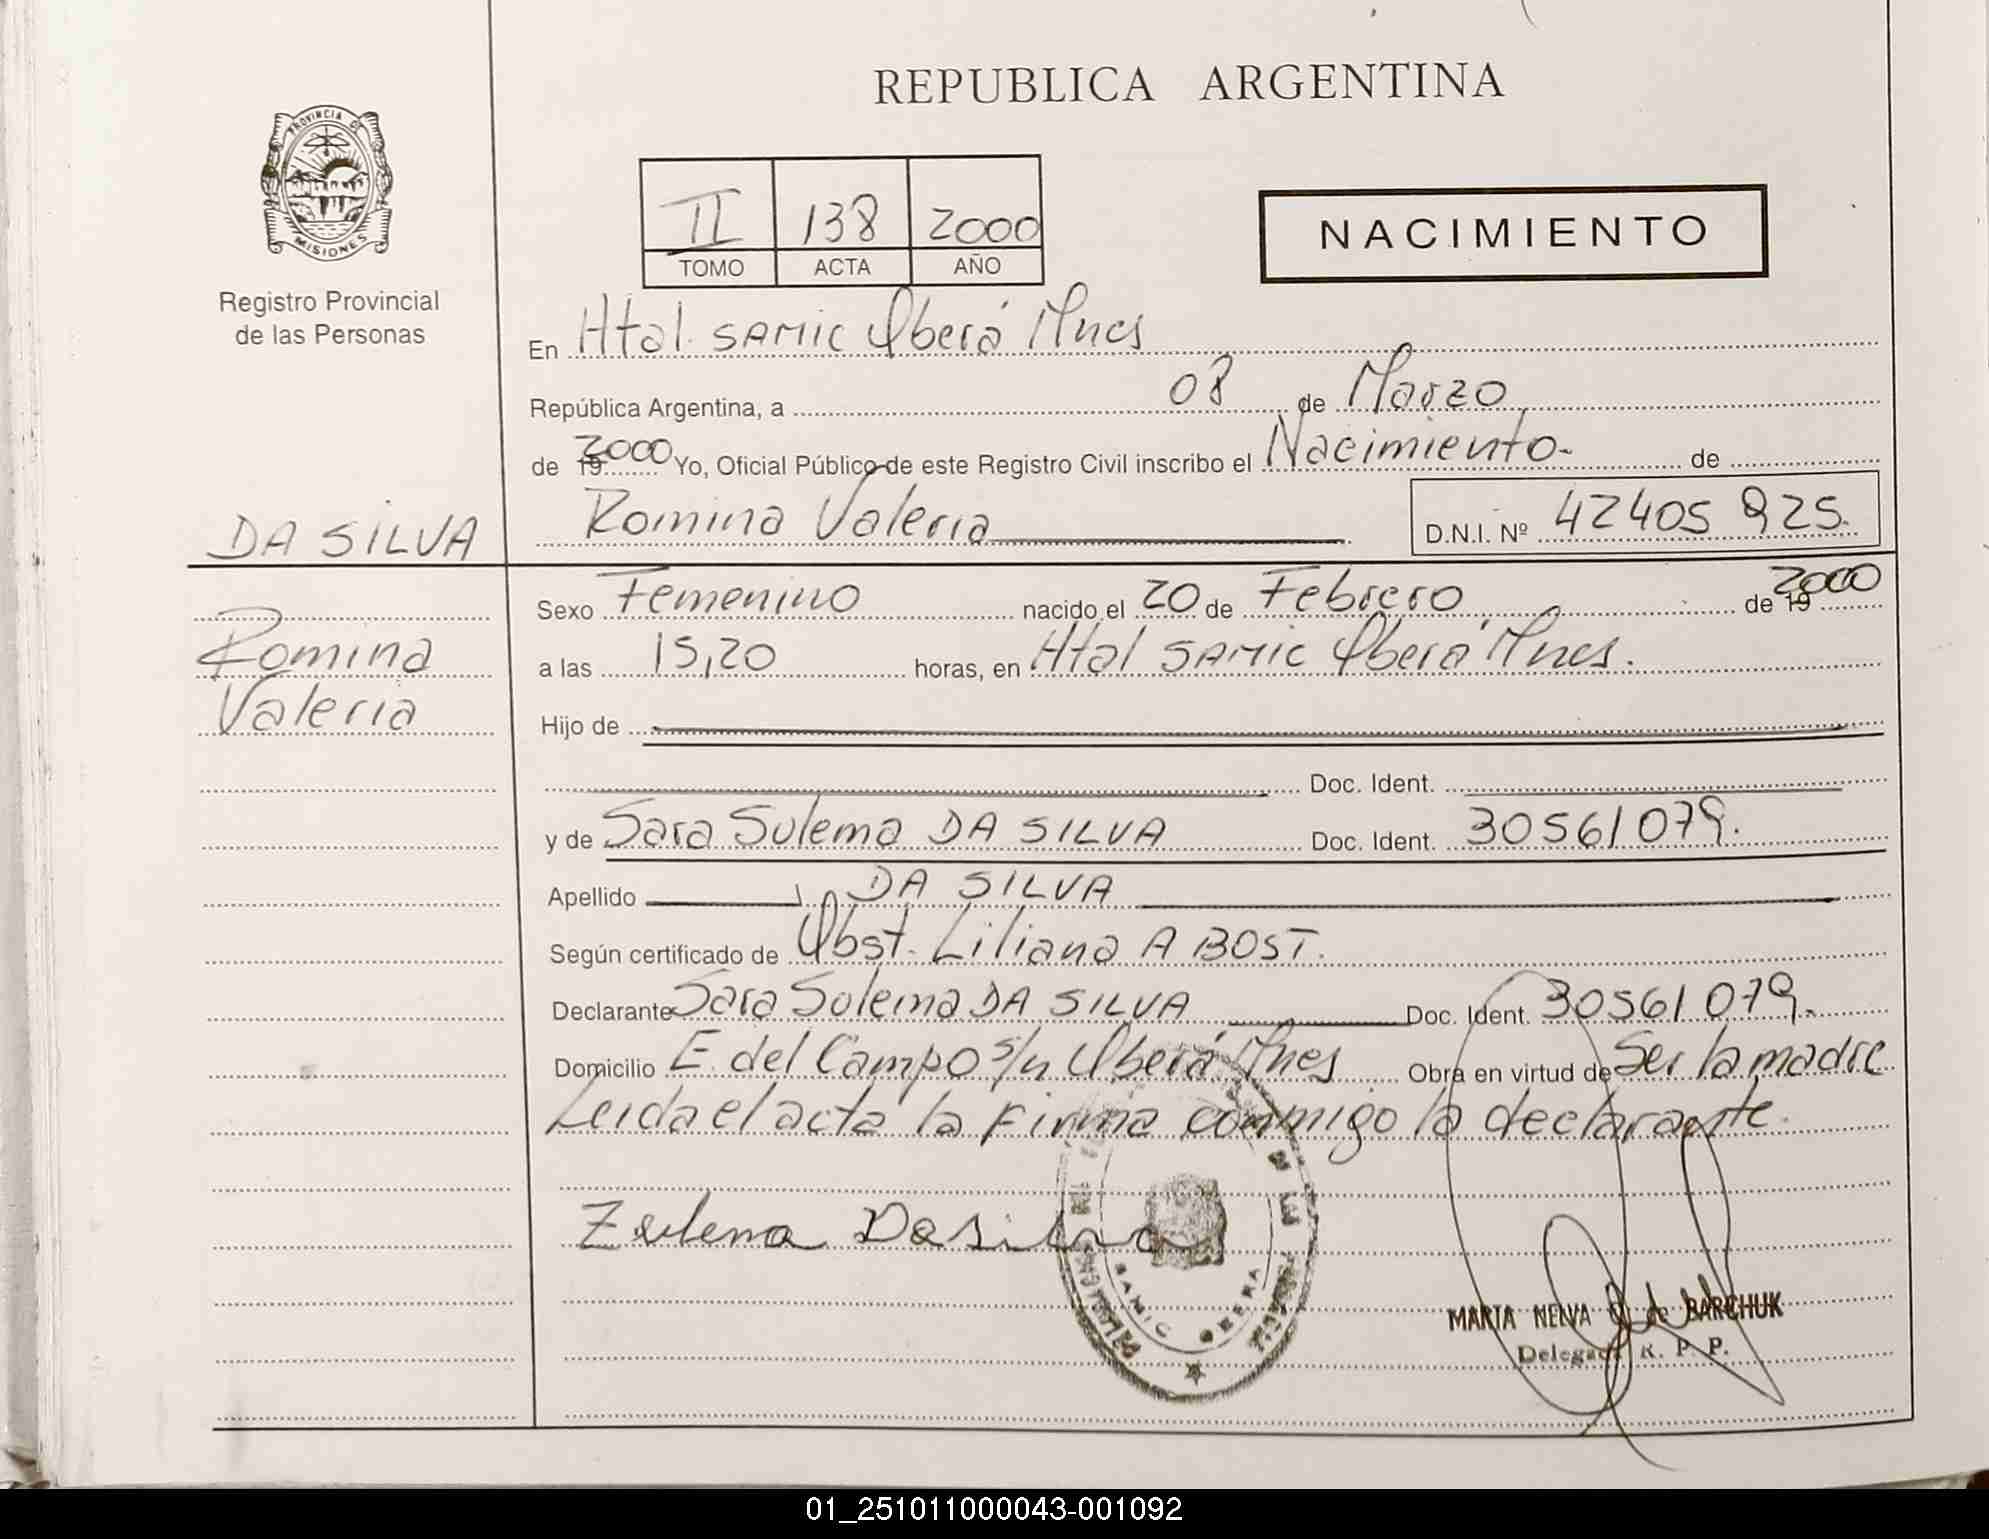 REPUBLICA ARGENTINA
PROVINCIA DE MISIONES
Registro Provincial
de las Personas
II 138 2000
TOMO ACTA AÑO
NACIMIENTO
En Htal. SAMIC Oberá Mnes
República Argentina, a 08 de Marzo
de 19 2000 Yo, Oficial Público de este Registro Civil inscribo el Nacimiento. de
DA SILVA
Romina Valeria D.N.I. Nº 42405 925.
Romina
Valeria
Sexo Femenino nacido el 20 de Febrero de 19 2000
a las 15,20 horas, en Htal SAMIC Oberá Mnes.
Hijo de
Doc. Ident.
y de Sara Sulema DA SILVA Doc. Ident. 30561079.
Apellido DA SILVA
Según certificado de Obst. Liliana A BOST.
Declarante Sara Sulema DA SILVA Doc. Ident. 30561079.
Domicilio E. del Campo s/n Oberá Mnes Obra en virtud de Ser la madre
Leida el acta la firma conmigo la declarante.
Zulema Dasilva
SAMIC OBERA
MARIA NELVA de BARCHUK
Delegada R. P. P.
01_251011000043-001092